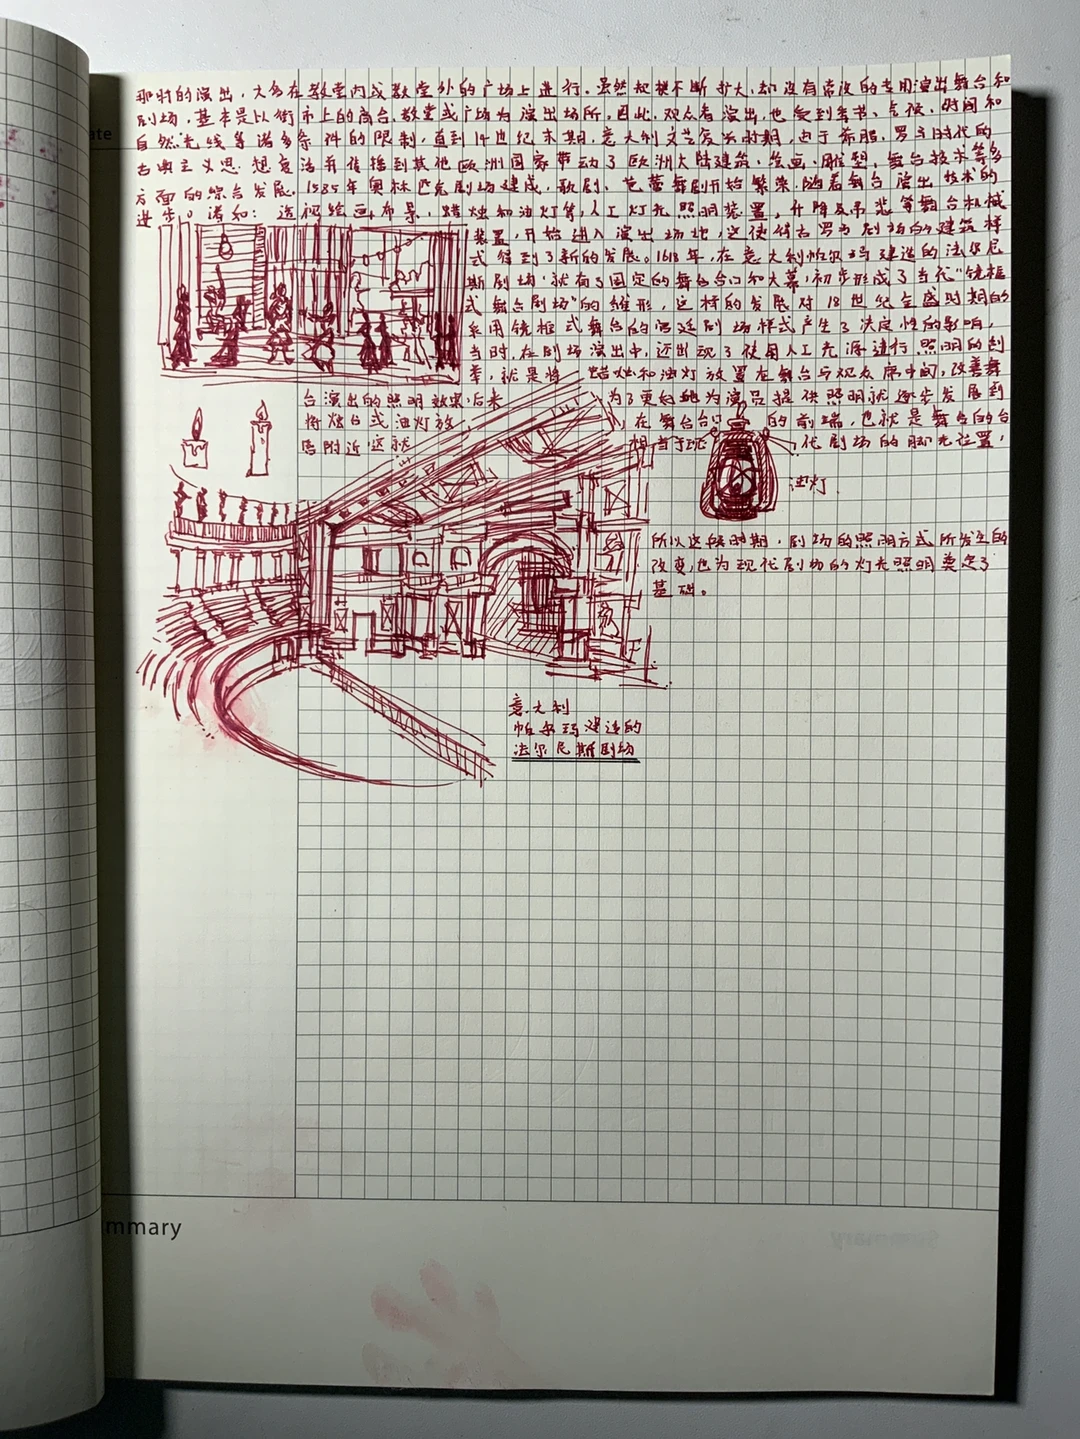 ate
那时的演出，大多在教堂内或教堂外的广场上进行。虽然规模不断扩大，却没有常设的专用演出舞台和
剧场，基本是以街市上的高台、教堂或广场为演出场所，因此，观众看演出，也受到季节、气候、时间和
自然光线等诸多条件的限制，直到14世纪末期，意大利文艺复兴时期，由于希腊、罗马时代的
古典主义思想复活并传播到其他欧洲国家带动了欧洲大陆建筑、绘画、雕塑、舞台技术等多
方面的综合发展。1585年奥林匹克剧场建成，歌剧、芭蕾舞剧开始繁荣。随着舞台演出技术的
进步。诸如：透视绘画布景，蜡烛和油灯等人工灯光照明装置，升降及吊悬等舞台机械
装置，开始进入演出场地，这使传古罗马剧场的建筑样
式得到了新的发展。1618年，在意大利帕尔玛建造的法尔尼
斯剧场，就有了固定的舞台台口和大幕，初步形成了当代"镜框
式舞台剧场"的雏形，这样的发展对18世纪全盛时期的
采用镜框式舞台的宫廷剧场样式产生了决定性的影响，
当时，在剧场演出中，还出现了使用人工光源进行照明的创
举，就是将蜡烛和油灯放置在舞台与观众席中间，改善舞
台演出的照明效果，后来 为了更好地为演员提供照明就逐步发展到
将烛台或油灯放 在舞台台口的前端，也就是舞台的台
唇附近，这就 相当于现代剧场的脚光位置，
油灯
所以这段时期，剧场的照明方式所发生的
改变，也为现代剧场的灯光照明奠定了
基础。
意大利
帕尔玛建造的
法尔尼斯剧场
mmary